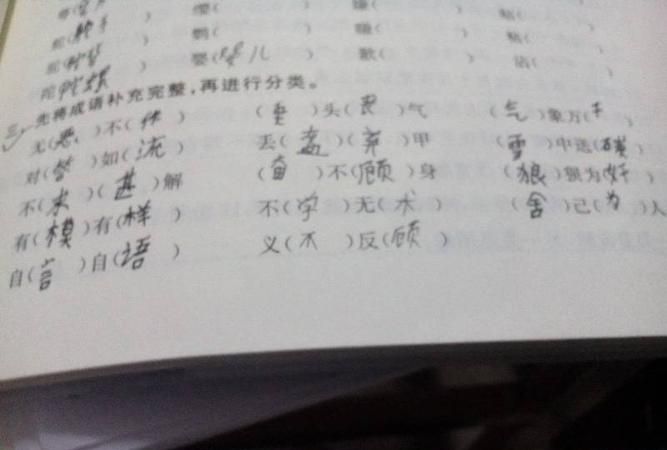 缨(
舵(舵手 ) 鹦( )
婴(婴儿 ) 歉( )
三、先将成语补充完整,再进行分类。
无(恶 )不(作 ) (垂 )头(丧 )气 (气 )象万(千 )
对(答 )如(流 ) 丢(盔 )(弃 )甲 (雪 )中送(碳 )
不(求 )(甚 )解 (奋 )不(顾 )身 (狼 )狈为(奸 )
有(模 )有(样 ) 不(学 )无(术 ) (舍 )己(为 )人
自(言 )自(语 ) 义(不 )反(顾 )